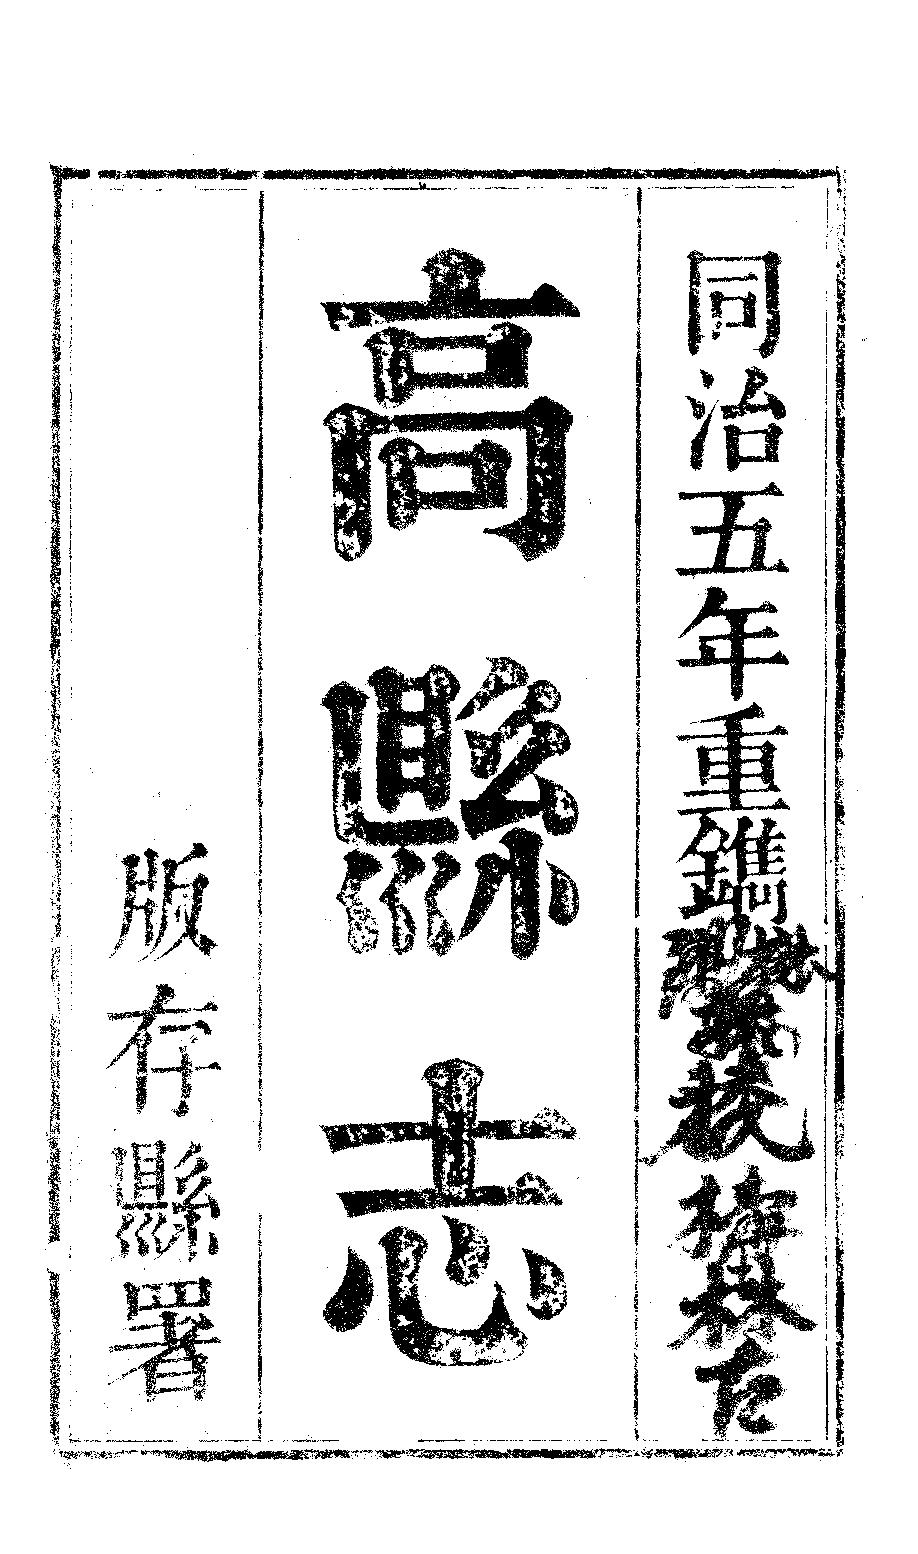 同治五年重鐫
高縣志
版存縣署